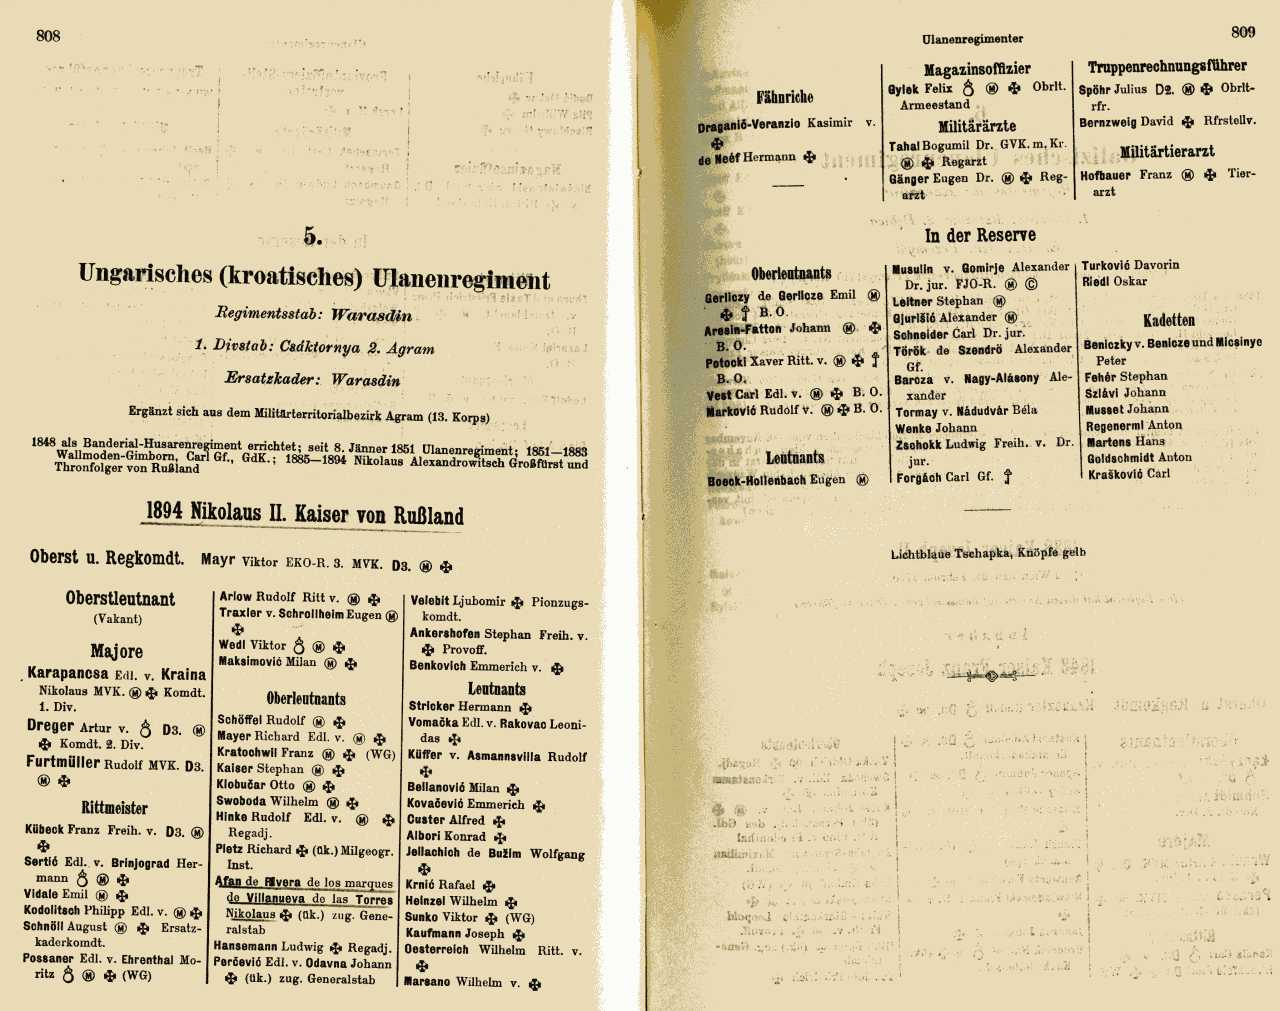 808
5.
Ungarisches (kroatisches) Ulanenregiment
Regimentsstab: Warasdin
1. Divstab: Csáktornya 2. Agram
Ersatzkader: Warasdin
Ergänzt sich aus dem Militärterritorialbezirk Agram (13. Korps)
1848 als Banderial-Husarenregiment errichtet; seit 8. Jänner 1851 Ulanenregiment; 1851—1883
Wallmoden-Gimborn, Carl Gf., GdK.; 1885—1894 Nikolaus Alexandrowitsch Großfürst und
Thronfolger von Rußland
1894 Nikolaus II. Kaiser von Rußland
Oberst u. Regkomdt. Mayr Viktor EKO-R. 3. MVK. D3. Ⓜ ✠
Oberstleutnant
(Vakant)
Majore
Karapancsa Edl. v. Kraina
Nikolaus MVK. Ⓜ ✠ Komdt.
1. Div.
Dreger Artur v. D3. Ⓜ
✠ Komdt. 2. Div.
Furtmüller Rudolf MVK. D3.
Ⓜ ✠
Rittmeister
Kübeck Franz Freih. v. D3. Ⓜ
✠
Sertić Edl. v. Brinjograd Her-
mann Ⓜ ✠
Vidale Emil Ⓜ ✠
Kodolitsch Philipp Edl. v. Ⓜ ✠
Schnöll August Ⓜ ✠ Ersatz-
kaderkomdt.
Possaner Edl. v. Ehrenthal Mo-
ritz Ⓜ ✠ (WG)
Arlow Rudolf Ritt v. Ⓜ ✠
Traxler v. Schrollheim Eugen Ⓜ
✠
Wedl Viktor Ⓜ ✠
Maksimović Milan Ⓜ ✠
Oberleutnants
Schöffel Rudolf Ⓜ ✠
Mayer Richard Edl. v. Ⓜ ✠
Kratochwil Franz Ⓜ ✠ (WG)
Kaiser Stephan Ⓜ ✠
Klobučar Otto Ⓜ ✠
Swoboda Wilhelm Ⓜ ✠
Hinke Rudolf Edl. v. Ⓜ ✠
Regadj.
Pletz Richard ✠ (ük.) Milgeogr.
Inst.
Afan de Rivera de los marques
de Villanueva de las Torres
Nikolaus ✠ (ük.) zug. Gene-
ralstab
Hansemann Ludwig ✠ Regadj.
Perčević Edl. v. Odavna Johann
✠ (ük.) zug. Generalstab
Velebit Ljubomir ✠ Pionzugs-
komdt.
Ankershofen Stephan Freih. v.
✠ Provoff.
Benkovich Emmerich v. ✠
Leutnants
Stricker Hermann ✠
Vomačka Edl. v. Rakovac Leoni-
das ✠
Küffer v. Asmannsvilla Rudolf
✠
Bellanović Milan ✠
Kovačević Emmerich ✠
Custer Alfred ✠
Albori Konrad ✠
Jellachich de Bužim Wolfgang
✠
Krnić Rafael ✠
Heinzel Wilhelm ✠
Sunko Viktor ✠ (WG)
Kaufmann Joseph ✠
Oesterreich Wilhelm Ritt. v.
✠
Marsano Wilhelm v. ✠
Ulanenregimenter
809
Fähnriche
Draganić-Veranzio Kasimir v.
✠
de Neéf Hermann ✠
Magazinsoffizier
Gylek Felix Ⓜ ✠ Obrlt.
Armeestand
Militärärzte
Tahal Bogumil Dr. GVK. m. Kr.
Ⓜ ✠ Regarzt
Gänger Eugen Dr. Ⓜ ✠ Reg-
arzt
Truppenrechnungsführer
Spöhr Julius D2. Ⓜ ✠ Obrlt-
rfr.
Bernzweig David ✠ Rfrstellv.
Militärtierarzt
Hofbauer Franz Ⓜ ✠ Tier-
arzt
In der Reserve
Oberleutnants
Gerliczy de Gerlicze Emil Ⓜ
✠ † B. O.
Aresin-Fatton Johann Ⓜ ✠
B. O.
Potocki Xaver Ritt. v. Ⓜ ✠ †
B. O.
Vest Carl Edl. v. Ⓜ ✠ B. O.
Marković Rudolf v. Ⓜ ✠ B. O.
Leutnants
Boeck-Hollenbach Eugen Ⓜ
Musulin v. Gomirje Alexander
Dr. jur. FJO-R. Ⓜ Ⓒ
Leitner Stephan Ⓜ
Gjurišić Alexander Ⓜ
Schneider Carl Dr. jur.
Török de Szendrö Alexander
Gf.
Barcza v. Nagy-Alásony Ale-
xander
Tormay v. Nádudvár Béla
Wenke Johann
Zschokk Ludwig Freih. v. Dr.
jur.
Forgách Carl Gf. †
Turković Davorin
Riedl Oskar
Kadetten
Beniczky v. Benicze und Micsinye
Peter
Fehér Stephan
Szlávi Johann
Musset Johann
Regenerml Anton
Martens Hans
Goldschmidt Anton
Krašković Carl
Lichtblaue Tschapka, Knöpfe gelb